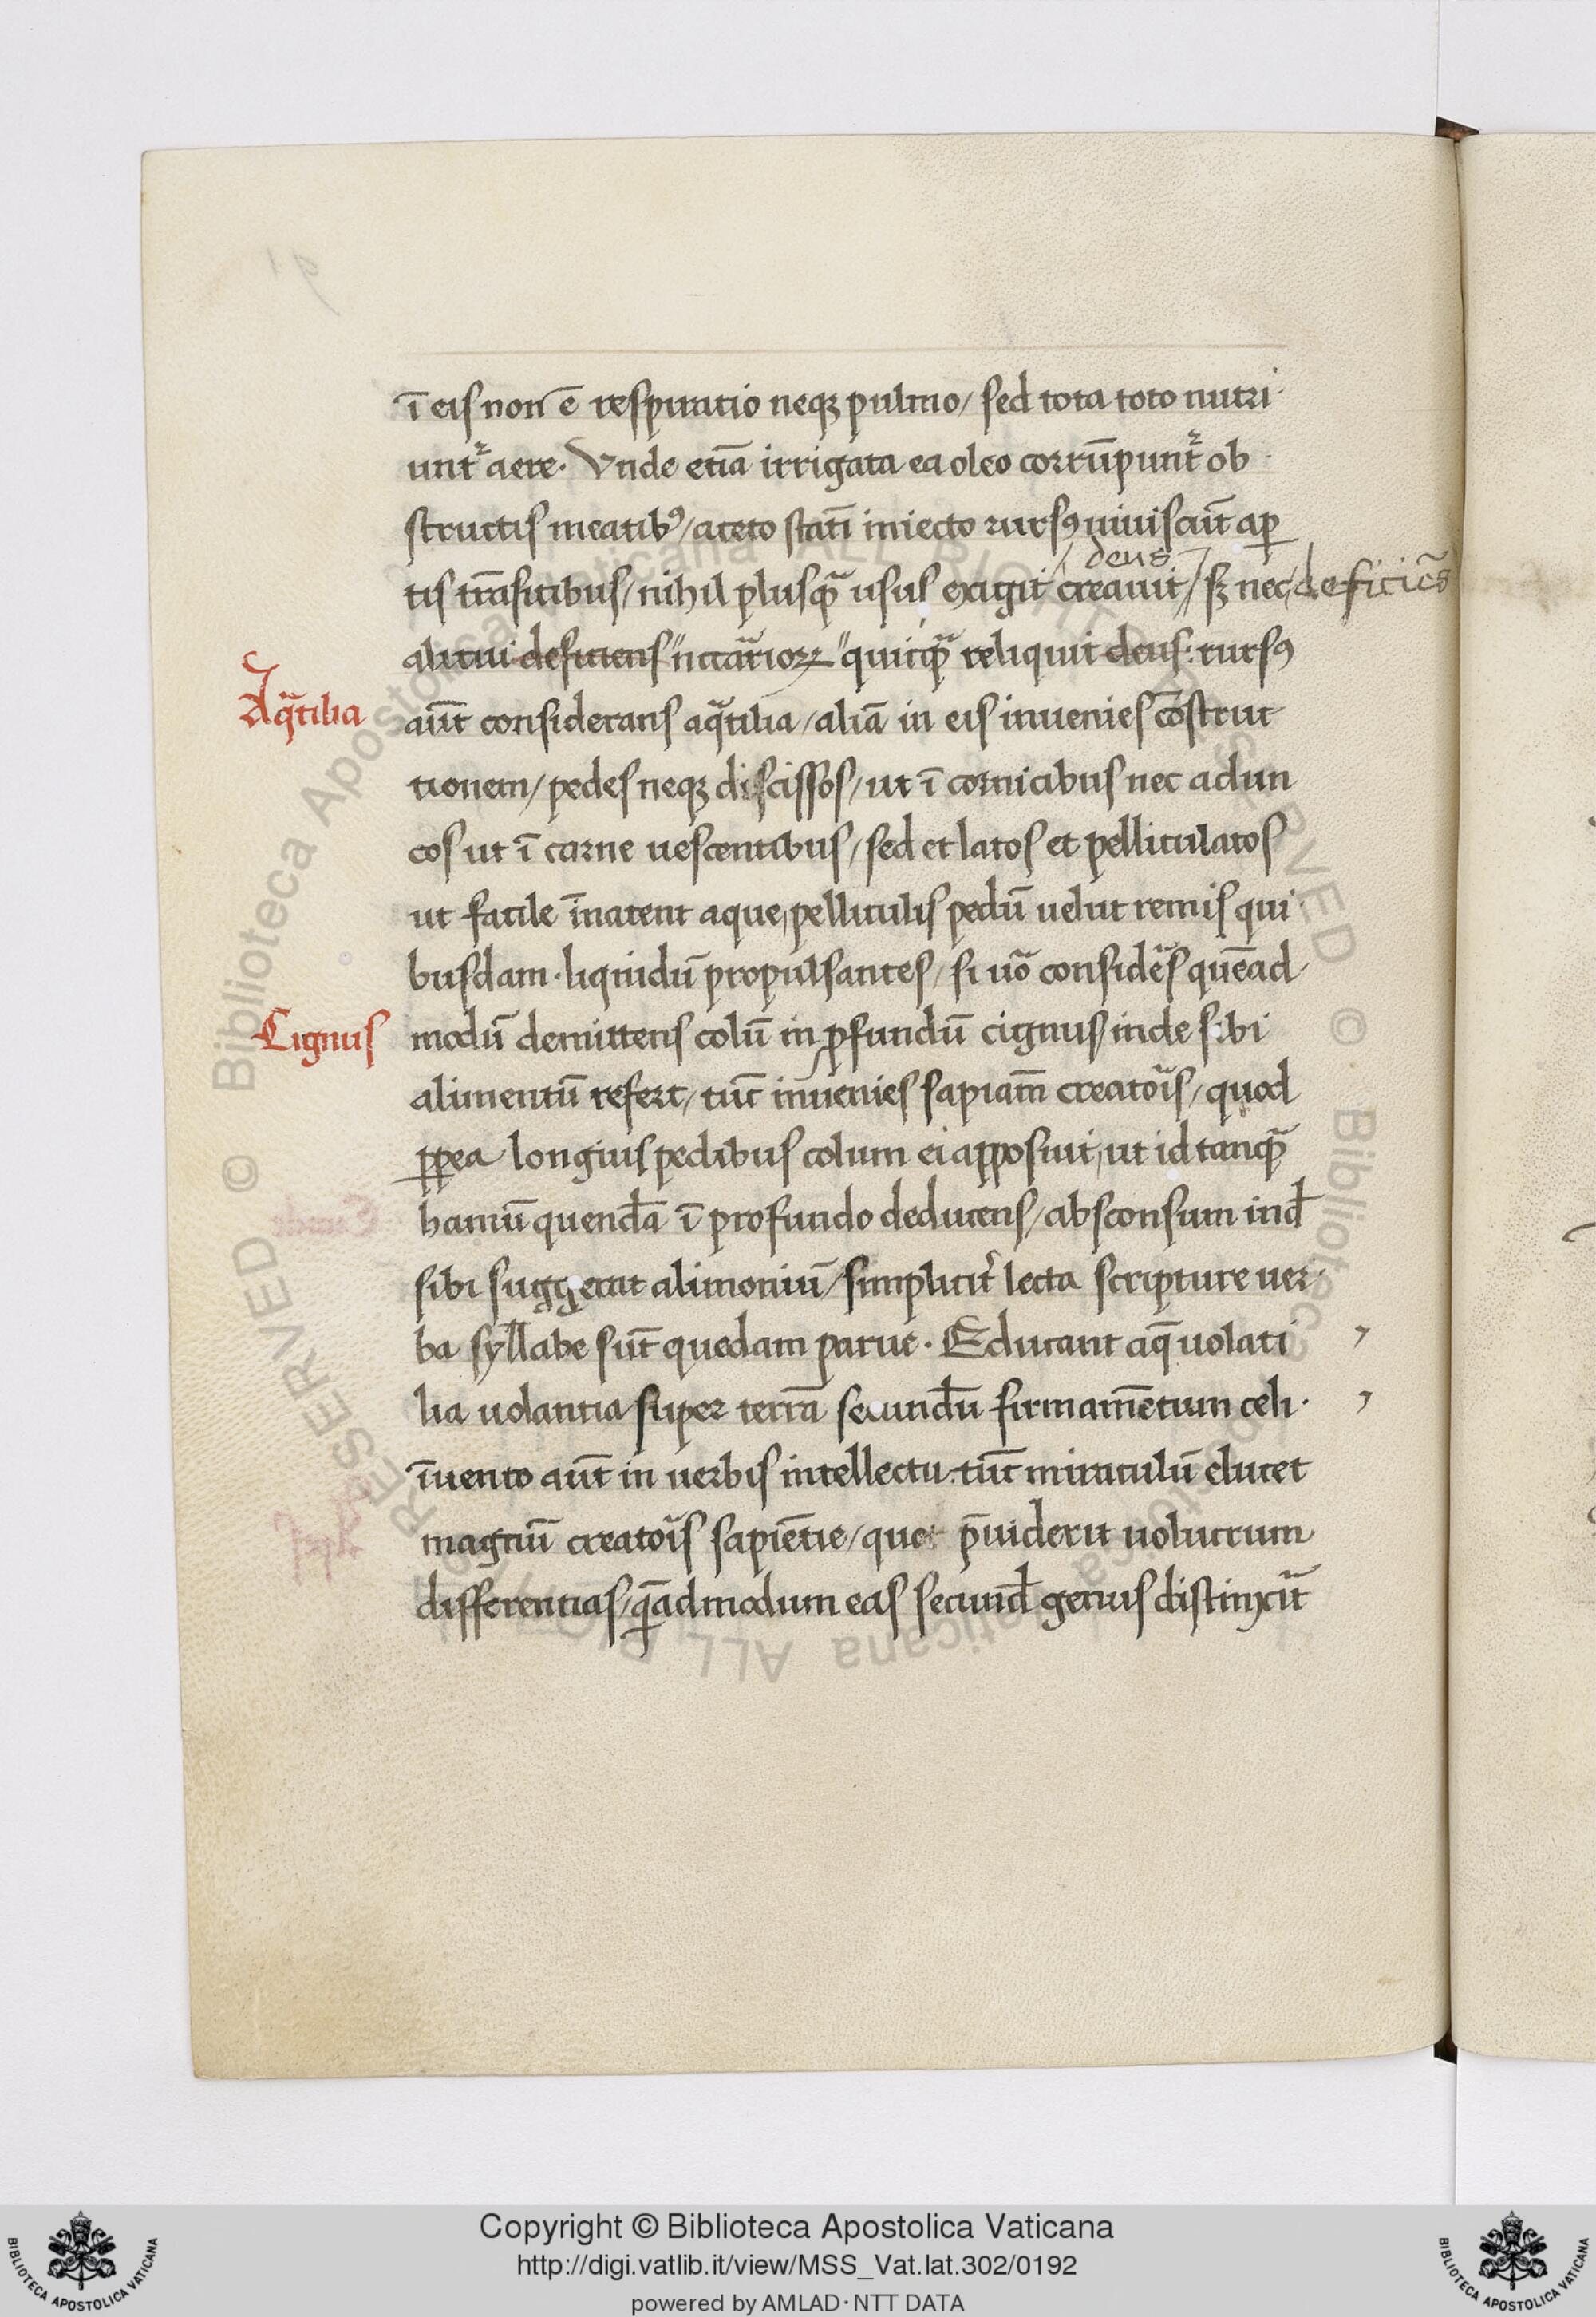 ī eis non ē respiratio neqꝫ pulmo/ sed tota toto nutri
untᷣ aere. Vnde etiā irrigata ea oleo corrūpuntᷣ ob
structis meatibꝰ/ aceto statī iniecto rursꝰ uiuiscūt aꝑ
deus
tis trāsitibus/ nihil plusꝗᷓ usus exigit creauit/ sꝫ nec deficiēs
alicui deficiens "nccārioꝝ" quicꝗᷓ reliquit deus: rursꝰ
Aqᷓtilia
aūt considerans aqᷓtilia/ aliā in eis inuenies cōstruc
tionem/ pedes neqꝫ discissos/ ut ī cornicibus nec adun
cos ut ī carne uescentibus/ sed et latos et pelliculatos
ut facile īnatent aque/ pelliculis pedū uelut remis qui
busdam. liquidū propulsantes/ si uo᷒ considēs quēad
Cignus
modū demittens colū in ꝓfundū cignus/ inde sibi
alimentū refert/ tūc inuenies sapiam̄ creatoīs/ quod
ꝓpea longius pedibus colum ei apposuit/ ut id tanꝗᷓ
hamū quendā ī profundo deducens/ absconsum ind̄
sibi suggerat alimoniū/ simplicit᷑ lecta scripture uer
ba syllabe sūt quedam parue. Educant aq̄ uolati
lia uolantia super terrā secundū firmamētum celi.
īuento aūt in uerbis intellectu. tūc miraculū elucet
magnū creatoīs sapiētie/ quot p̄uiderit uolucrum
differentias/ qͥādmodum eas secund̄ genus distinxīt
Copyright © Biblioteca Apostolica Vaticana
http://digi.vatlib.it/view/MSS_Vat.lat.302/0192
powered by AMLAD·NTT DATA
BIBLIOTECA APOSTOLICA VATICANA
BIBLIOTECA APOSTOLICA VATICANA